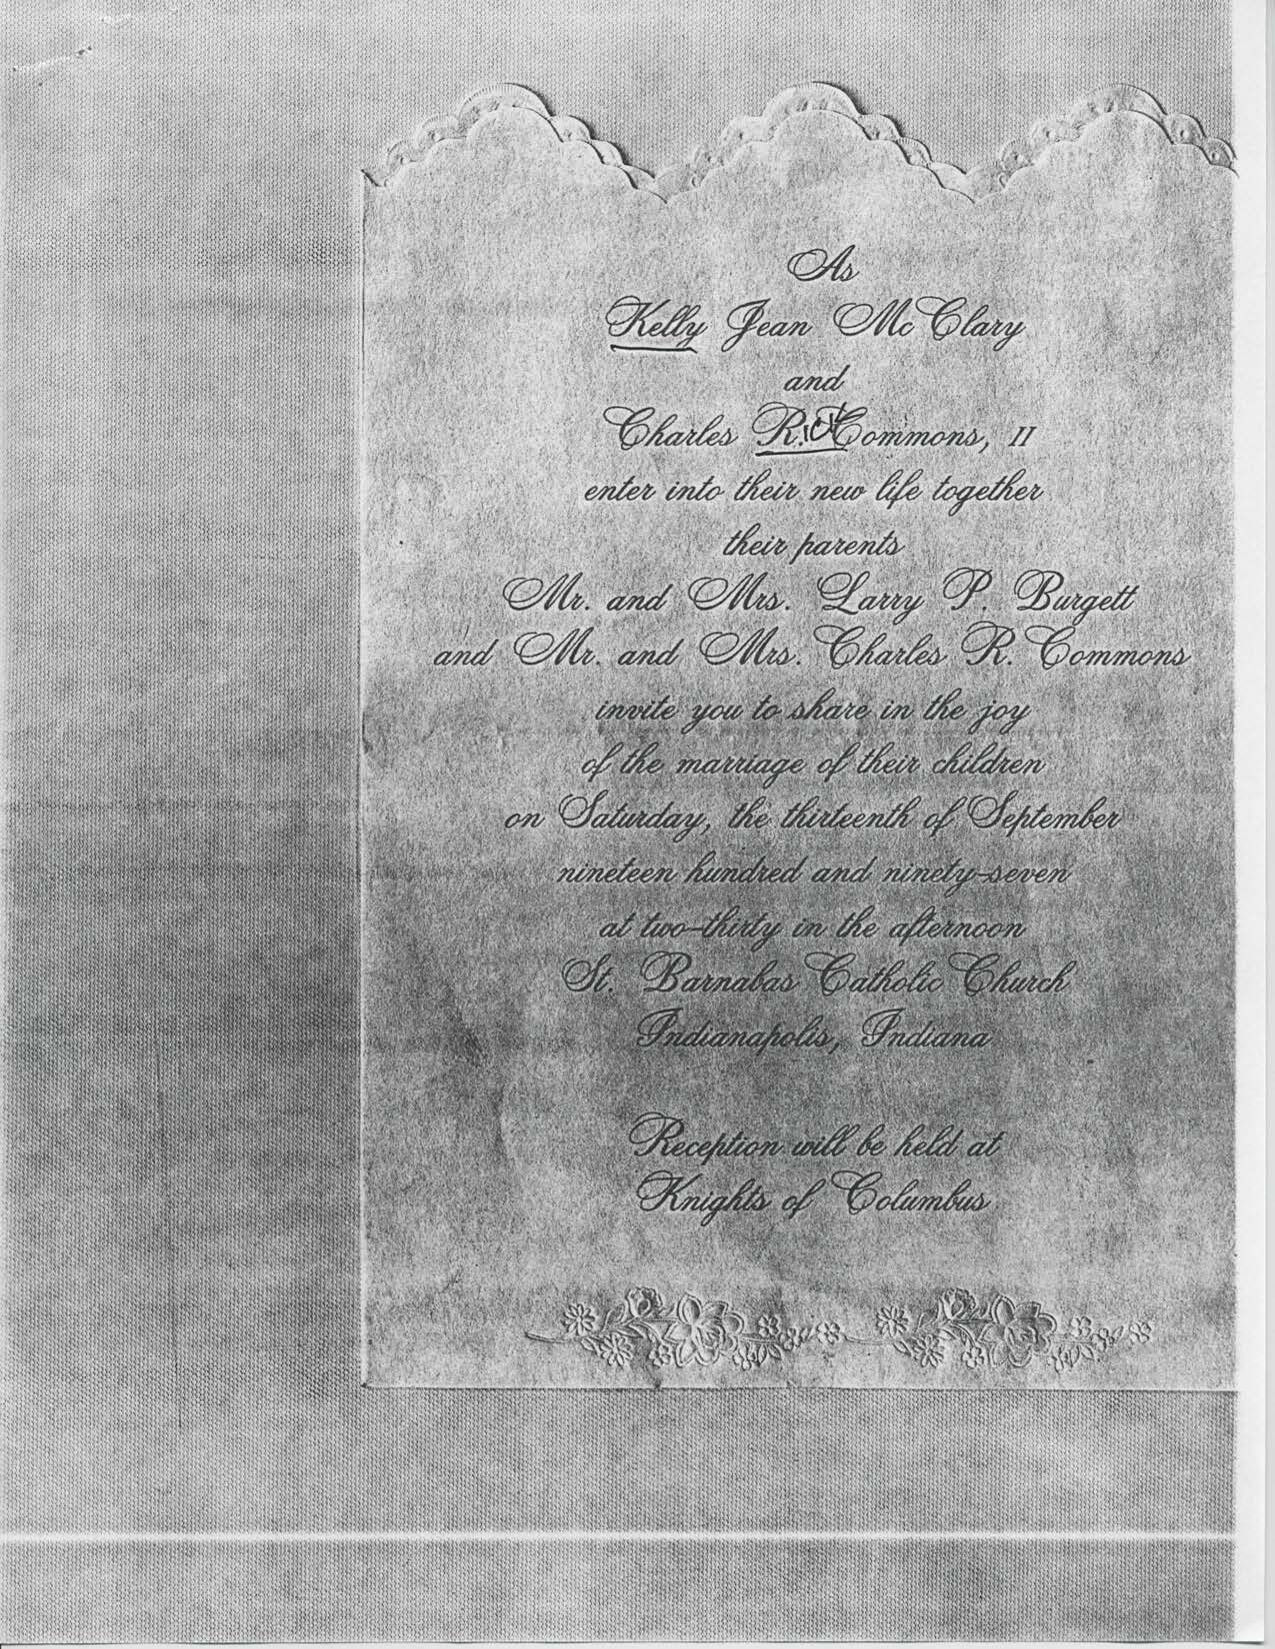 As
Kelly Jean McClary
and
Charles R.ick Commons, II
enter into their new life together
their parents
Mr. and Mrs. Larry P. Burgett
and Mr. and Mrs. Charles R. Commons
invite you to share in the joy
of the marriage of their children
on Saturday, the thirteenth of September
nineteen hundred and ninety-seven
at two-thirty in the afternoon
St. Barnabas Catholic Church
Indianapolis, Indiana
Reception will be held at
Knights of Columbus